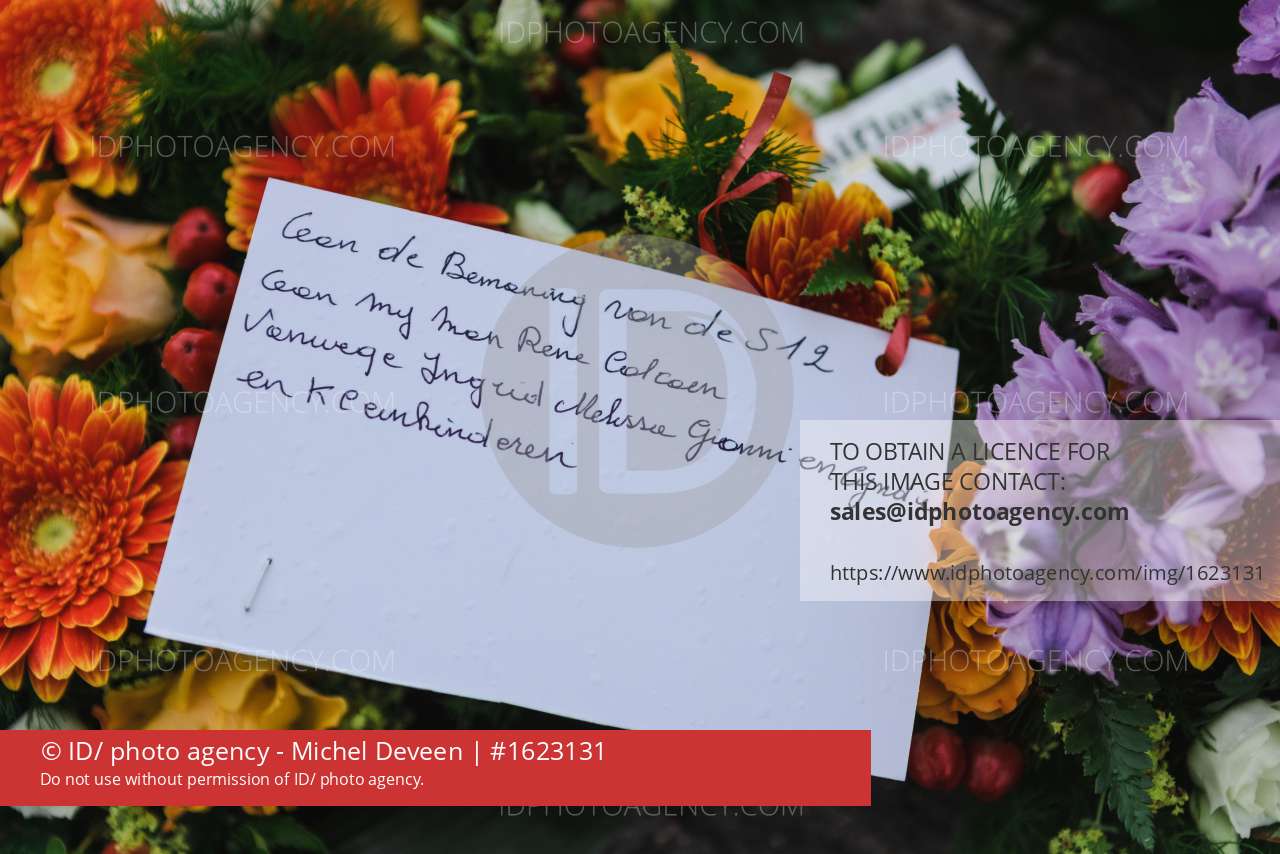 IDPHOTOAGENCY.COM
IDPHOTOAGENCY.COM IDPHOTOAGENCY.COM
iflora
Aan de Bemanning van de S12
aan my man Rene Calcoen
Vanwege Ingrid Melissa Gianni en
en Kleinkinderen
IDPHOTOAGENCY.COM IDPHOTOAGENCY.COM
ID
TO OBTAIN A LICENCE FOR
THIS IMAGE CONTACT:
sales@idphotoagency.com
https://www.idphotoagency.com/img/1623131
IDPHOTOAGENCY.COM IDPHOTOAGENCY.COM
© ID/ photo agency - Michel Deveen | #1623131
Do not use without permission of ID/ photo agency.
IDPHOTOAGENCY.COM